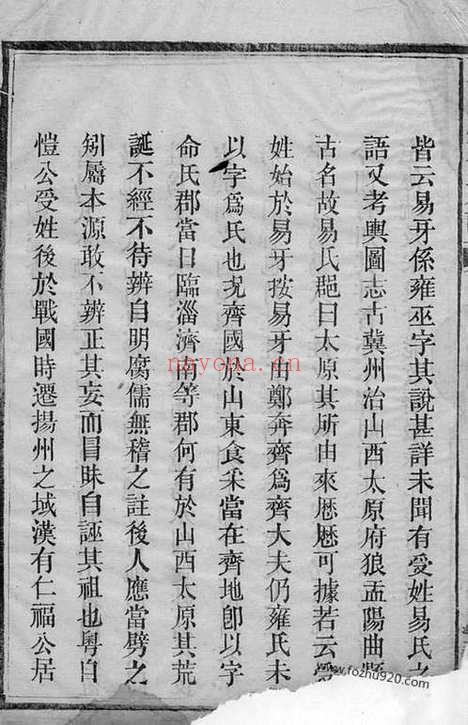 皆云易牙係雍巫字其說甚詳未聞有受姓易氏之
語又考輿圖志古冀州治山西太原府狼孟陽曲縣
古名故易氏郡曰太原其所由來歷歷可據若云
姓始於易牙按易牙由鄭奔齊為齊大夫仍雍氏未
以字為氏也況齊國於山東食采當在齊地卽以字
命氏郡當曰臨淄濟南等郡何有於山西太原其荒
誕不經不待辨自明腐儒無稽之註後人應當劈之
矧屬本源敢不辨正其妄而冒昧自誣其祖也粵自
愷公受姓後於戰國時遷揚州之域漢有仁福公居
nayona.cn
www.fozhu920.com